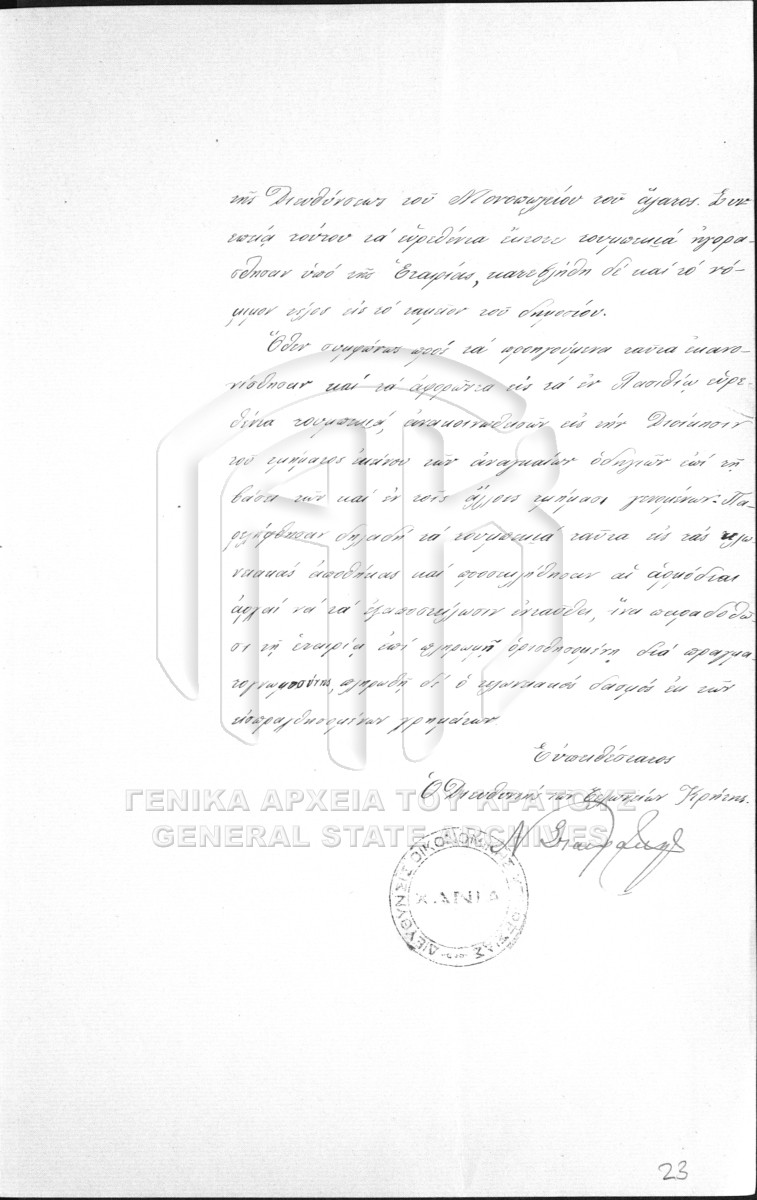 τῆς Διευθύνσεως τοῦ Μονοπωλείου τοῦ ἅλατος. Συν
επείᾳ τούτου τὰ εὑρεθέντα ἔκτοτε τουμπεκιὰ ἠγορά
σθησαν ὑπὸ τῆς Ἑταιρίας, κατεβλήθη δὲ καὶ τὸ νό-
μιμον τέλος εἰς τὸ ταμεῖον τοῦ δημοσίου.
Ὅθεν συμφώνως πρὸς τὰ προηγούμενα ταῦτα ἐκανο-
νίσθησαν καὶ τὰ ἀφορῶντα εἰς τὰ ἐν Λασιθίῳ εὑρε-
θέντα τουμπεκιά, ἀνακοινωθεισῶν εἰς τὴν Διοίκησιν
τοῦ τμήματος ἐκείνου τῶν ἀναγκαίων ὁδηγιῶν ἐπὶ τῇ
βάσει τῶν καὶ ἐν τοῖς ἄλλοις τμήμασι γενομένων. Πα-
ρελήφθησαν δηλαδὴ τὰ τουμπεκιὰ ταῦτα εἰς τὰς τελω
νειακὰς ἀποθήκας καὶ προσεκλήθησαν αἱ ἁρμόδιαι
ἀρχαὶ νὰ τὰ ἐξαποστείλωσιν ἐνταῦθα, ἵνα παραδοθῶ-
σι τῇ ἑταιρίᾳ ἐπὶ πληρωμῇ ὁρισθησομένῃ διὰ πραγμα-
τογνωμοσύνης, πληρωθῇ δὲ ὁ τελωνειακὸς δασμὸς ἐκ τῶν
εἰσπραχθησομένων χρημάτων.
Εὐπειθέστατος
Ὁ Διευθυντὴς τῶν Τελωνείων Κρήτης.
ΓΕΝΙΚΑ ΑΡΧΕΙΑ ΤΟΥ ΚΡΑΤΟΥΣ
GENERAL STATE ARCHIVES
ΔΙΕΥΘΥΝΣΙΣ ΟΙΚΟΝΟΜΙΚΗΣ ΥΠΗΡΕΣΙΑΣ
ΧΑΝΙΑ
23